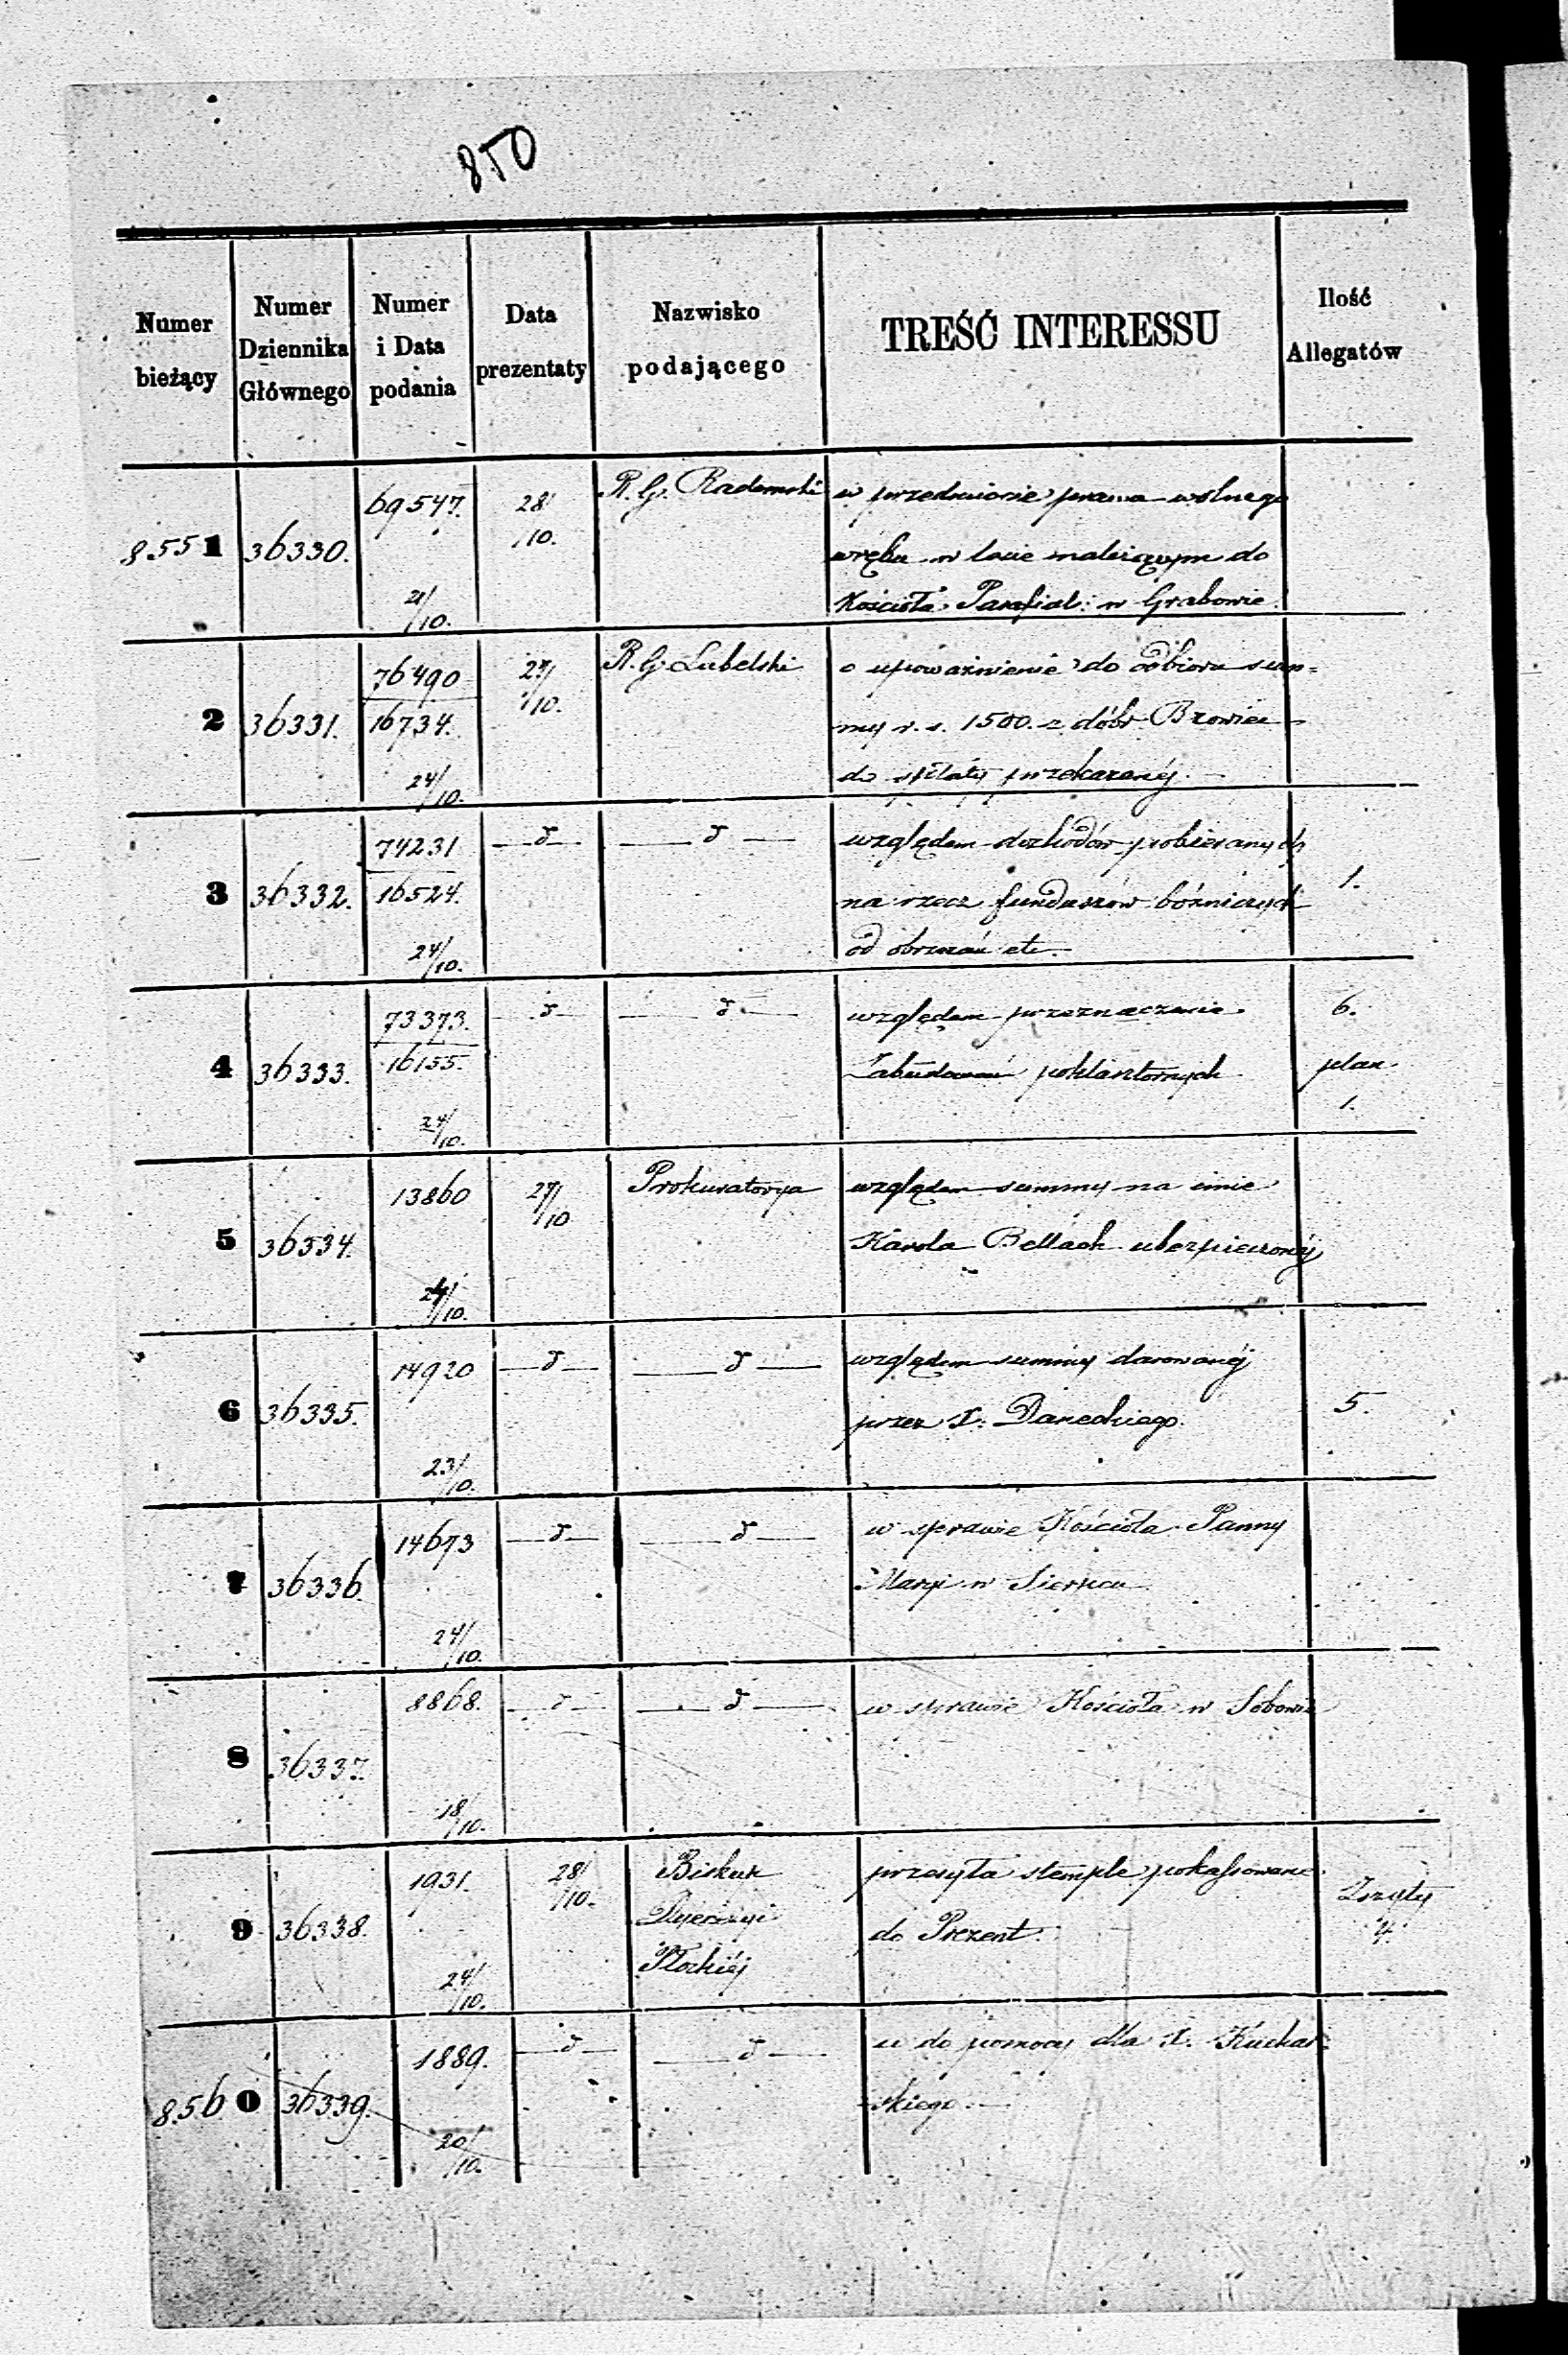 850
Numer bieżący
Numer Dziennika Głównego
Numer i Data podania
Data prezentaty
Nazwisko podającego
TREŚĆ INTERESSU
Ilość Allegatów
8551 36330. 69547. 21/10. 28/10. R. G. Radomski w przedmiocie prawa wolnego
wrębu w lasie należącym do
Kościoła Parafial: w Grabowie.
2 36331. 76490 16734. 24/10. 27/10. R. G. Lubelski o upoważnienie do odbioru sum=
my r. s. 1500. z dóbr
do spłaty przekazanéj.
3 36332. 74231 16524. 24/10. —d— —d— względem dochodów pobieranych 1.
na rzecz funduszów bóżniczych
od obrzezań etc.
4 36333. 73373. 16155. 24/10. —d— —d— względem przeznaczenia 6.
Zabudowań poklasztornych plan
1.
5 36334. 13860 24/10. 27/10 Prokuratorya względem summy na imie
Karola Bellach ubezpieczonéj
6 36335. 14920 23/10. —d— —d— względem summy darowanéj
przez X. Daneckiego. 5.
7 36336. 14673 24/10. —d— —d— w sprawie Kościoła Panny
Maryi w Sierpcu
8 36337. 8868. 18/10. —d— —d— w sprawie Kościoła w
9 36338. 1931. 24/10. 28/10. Biskup przesyła stemple pokassowane
Dyecezyi do Prezent. Zszyty
Płockiéj 4.
8560 36339. 1889. 20/10. —d— —d— w do pomocy dla X. Kuchar=
skiego.